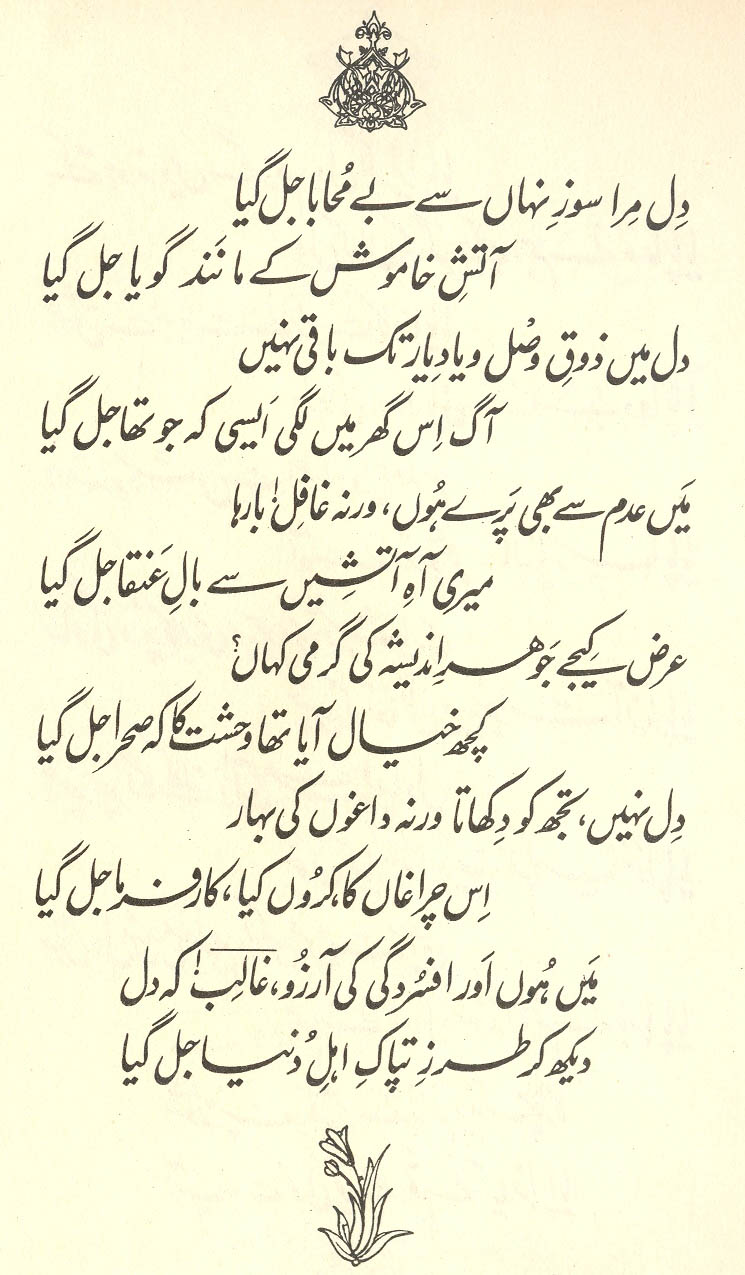 دِل مِرا سوزِ نہاں سے بے مُحابا جل گیا
آتشِ خاموش کے مانَند گویا جل گیا
دل میں ذوقِ وصْل و یادِ یار تک باقی نہیں
آگ اِس گھر میں لگی اَیسی کہ جو تھا جل گیا
مَیں عدم سے بھی پَرے ہُوں، ورنہ غافِل! بارہا
میری آہِ آتشِیں سے بالِ عَنقا جل گیا
عرض کیجے جَوہرِ اندیشہ کی گرمی کہاں؟
کچھ خیال آیا تھا وحشت کا کہ صحرا جل گیا
دِل نہیں، تجھ کو دِکھاتا ورنہ داغوں کی بہار
اِس چراغاں کا، کرُوں کیا، کارفرما جل گیا
مَیں ہُوں اَور افسُردگی کی آرزُو، غالِب! کہ دل
دیکھ کر طرزِ تپاکِ اہلِ دُنیا جل گیا